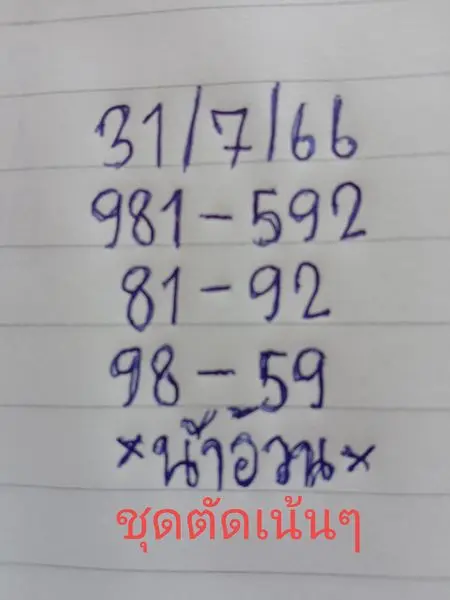 31/7/66
981-592
81-92
98-59
×น้าอ้วน×
ชุดตัดเน้นๆ